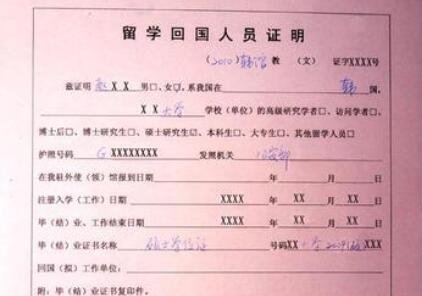 留学回国人员证明
(2010) 韩馆 教 (文) 证字XXXX号
兹证明 赵 X X 男□、女□,系我国在 韩 国,
X X 大学 学校(单位)的高级研究学者□、访问学者□、
博士后□、博士研究生□、硕士研究生☑、本科生□、大专生□、其他留学人员□
护照号码 G XXXXXXXX 发照机关 公安部
在我驻外使(领)馆报到日期 年 月 日
注册入学(工作)日期 XXXX 年 XX 月 XX 日
毕(结)业、工作结束日期 XXXX 年 XX 月 XX 日
毕(结)业证书名称 硕士学位证 号码XX 大学2009
回国(拟)工作单位:
附:毕(结)业证书复印件。